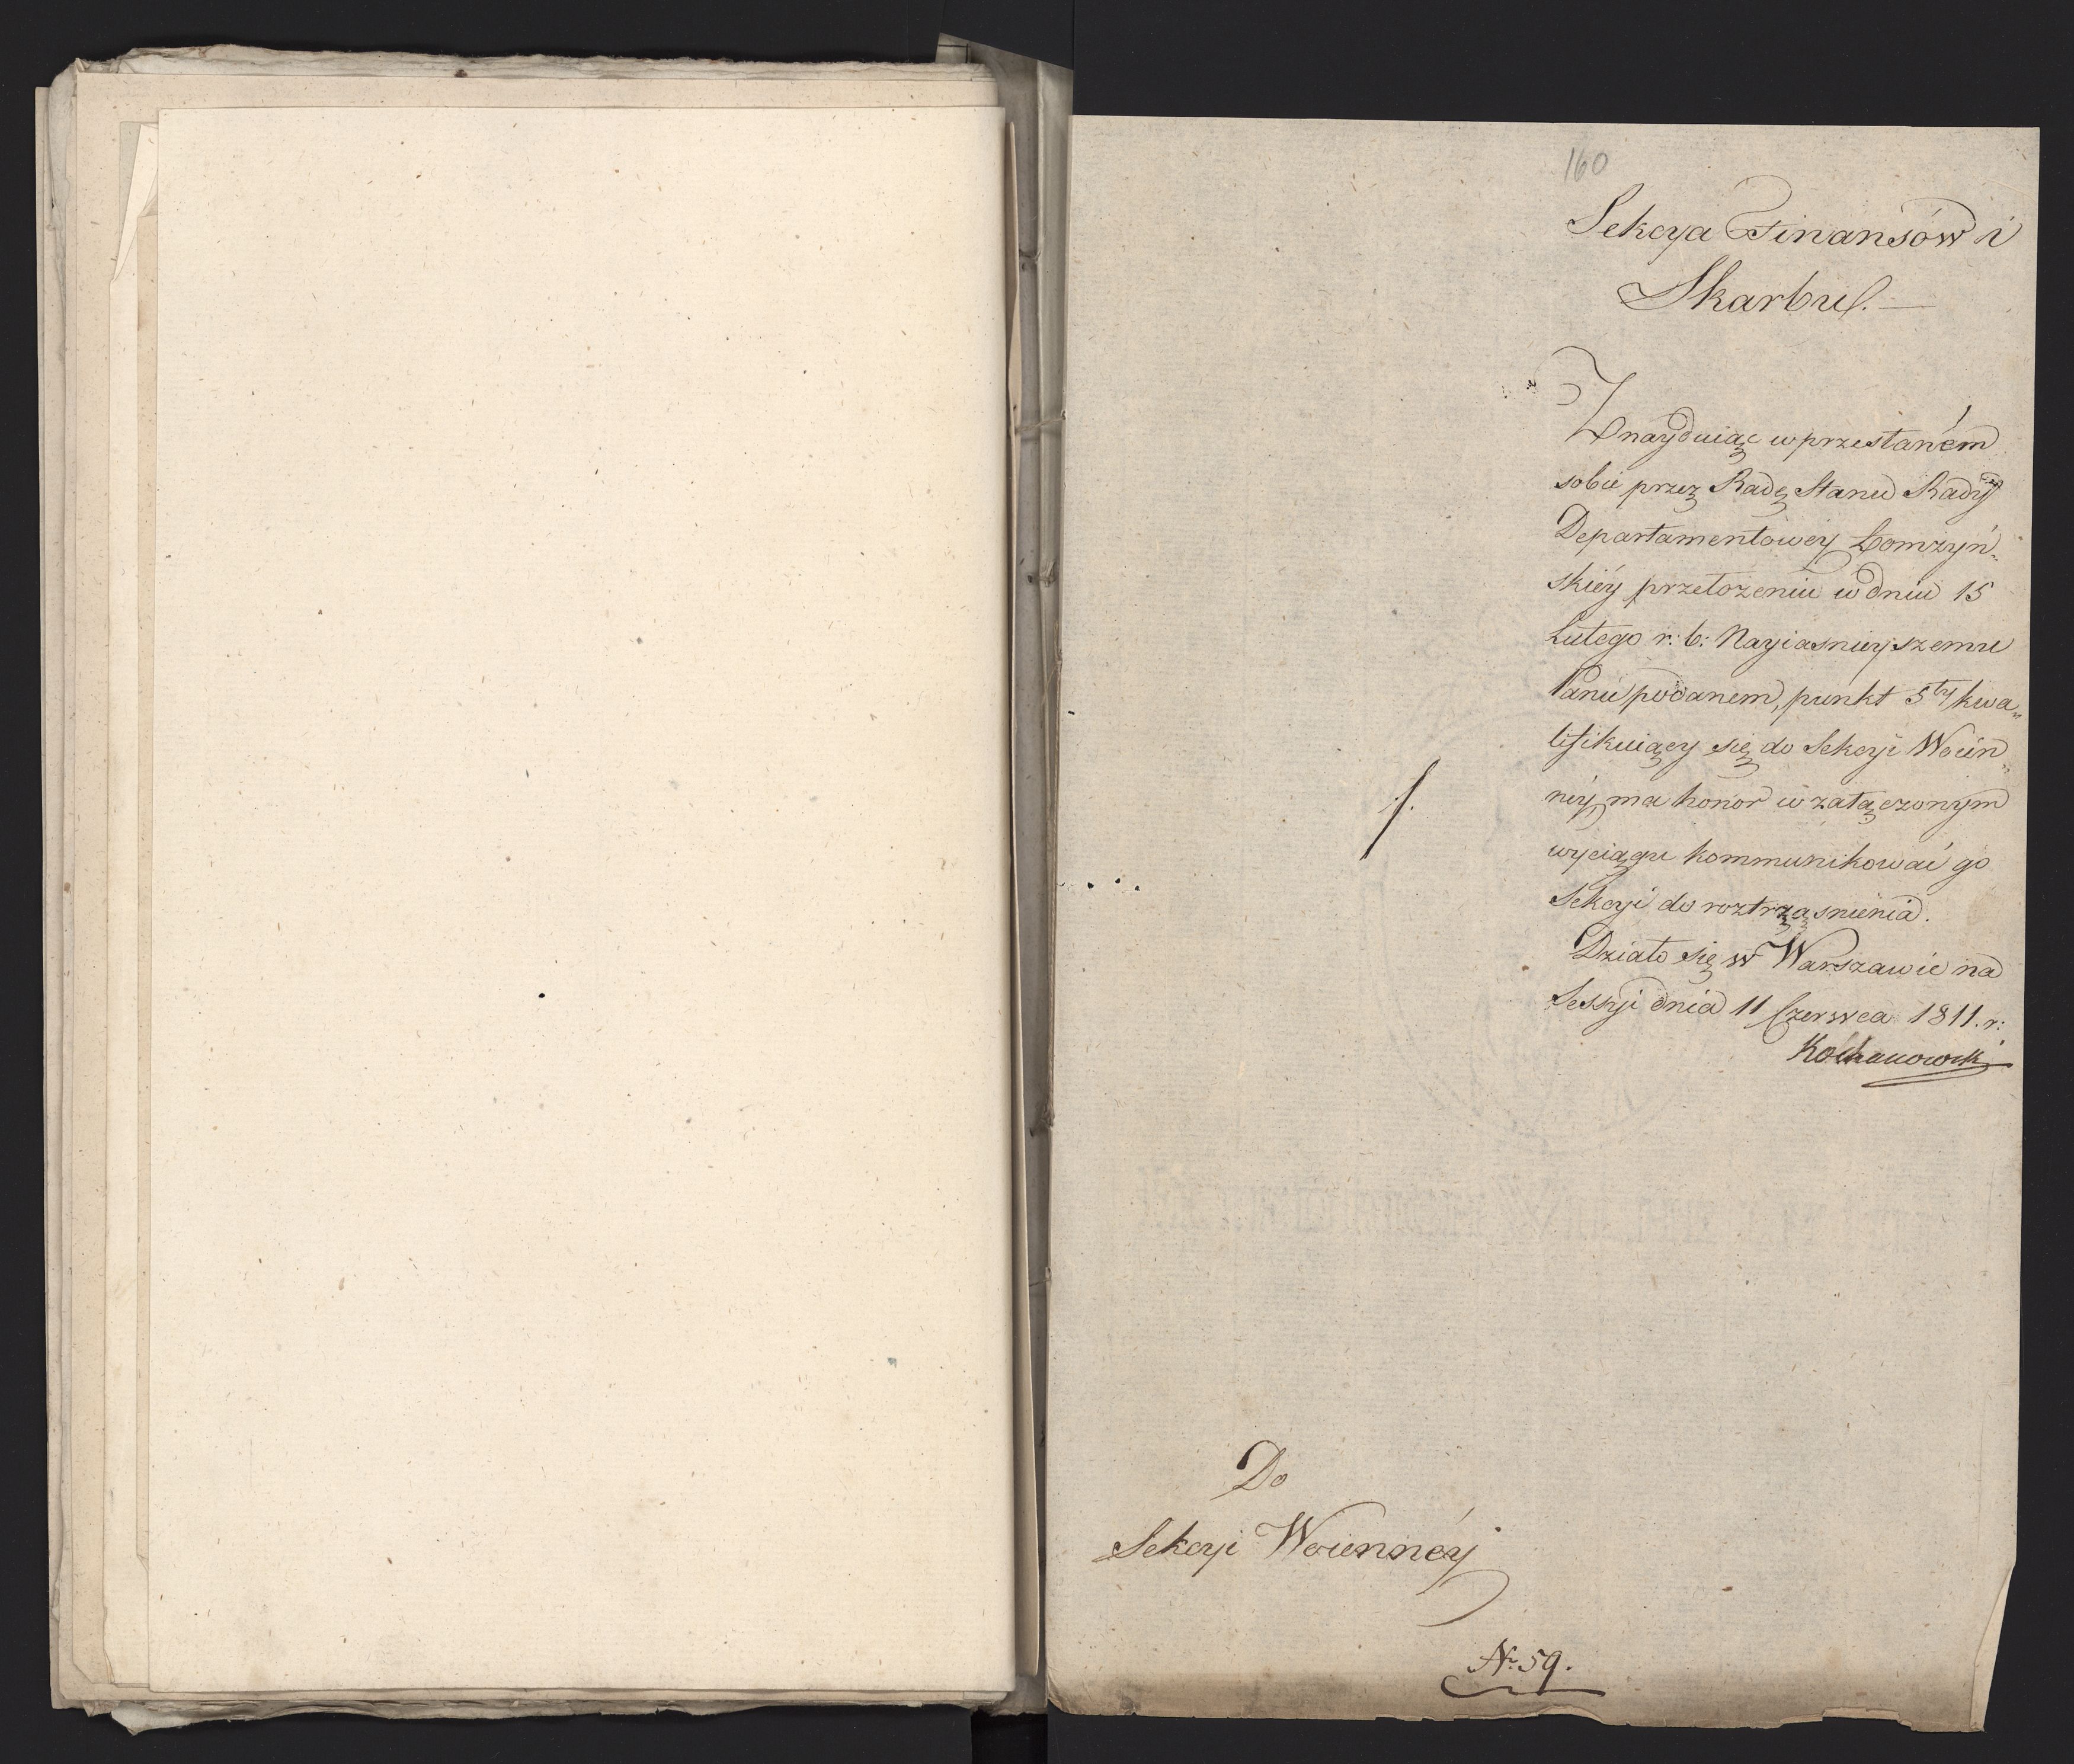 160
Sekcya Finansów i
Skarbu.
Znayduiąc w przesłaném
sobie przez Radę Stanu Rady
Departamentowéy Łomżyń„
skiéy przełożeniu w dniu 15
Lutego r: b: Nayiasnieyszemu
Panu podanem, punkt 5ty kwa„
lifikuiący się do Sekcyi Woien„
néy, ma honor w załączonym
wyciągu kommunikować go
Sekcyi do roztrząsnienia.
Działo się w Warszawie na
Sessyi dnia 11 Czerwca 1811. r:
Kochanowski
Do
Sekcyi Woiennéy
Nr. 59.